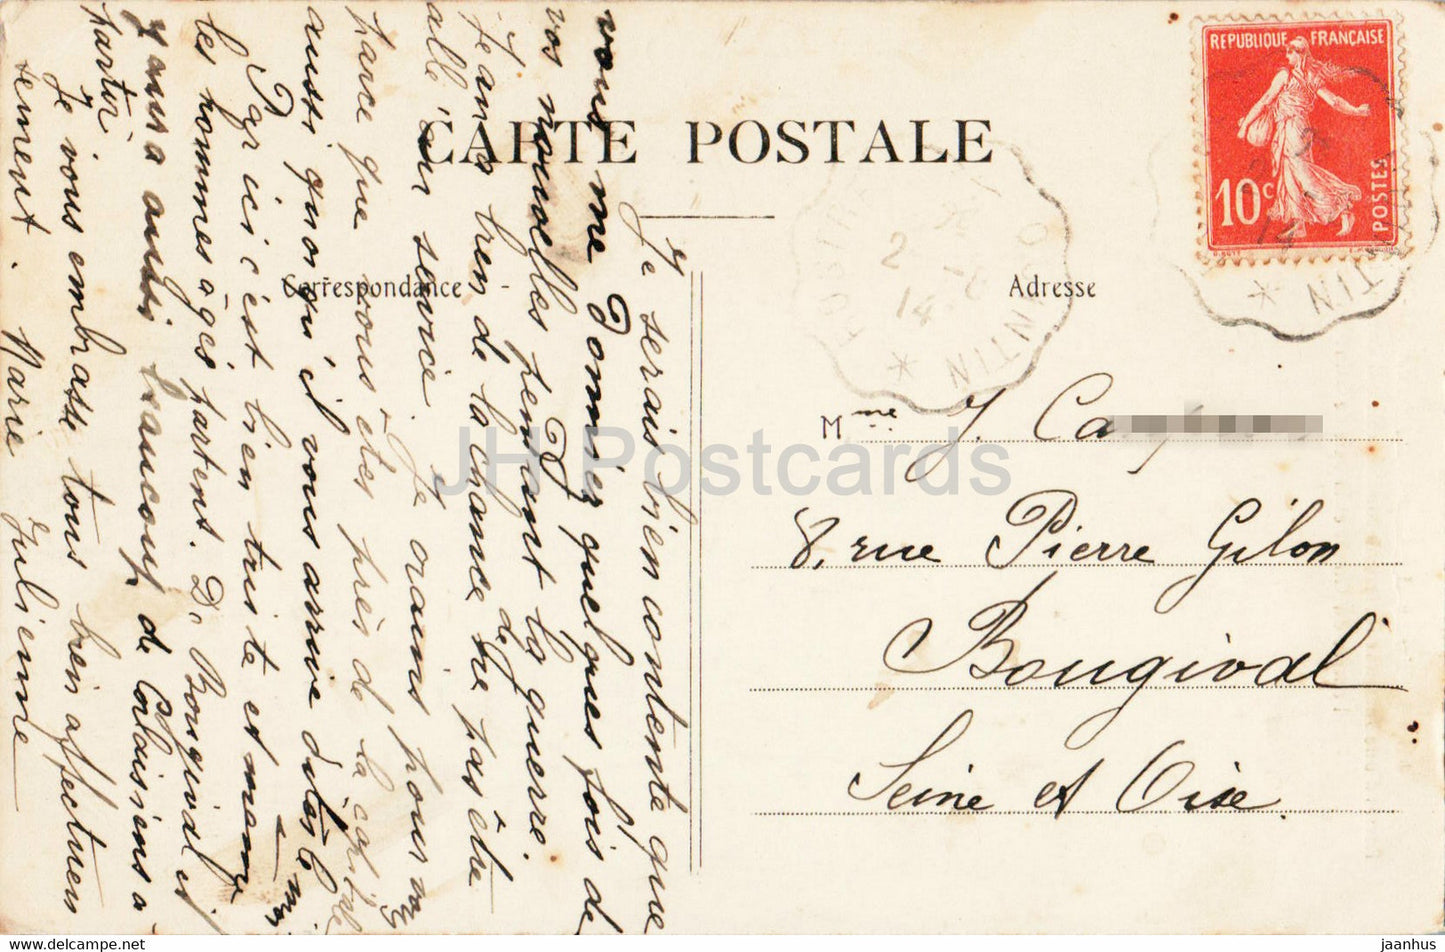 CARTE POSTALE
Correspondance
Adresse
REPUBLIQUE FRANÇAISE
10c
POSTES
2 - 8
14
Mme J. Ca
8, rue Pierre Gilon
Bougival
Seine et Oise
Je serais bien contente que
vous me donnier quelques fois de
vos nouvelles pendant la guerre.
Jean a bien de la chance de ne pas être
allé au service. Je crains pour
parce que vous êtes près de la capitale
aussi quoiqu'il vous arrive
Par ici c'est bien triste et même
les hommes âgés partent. De Bougival il
y aura aussi beaucoup de à
partir.
Je vous embrasse tous bien affectueu
sement. Marie Julienne
JH Postcards
www.delcampe.net
jaanhus